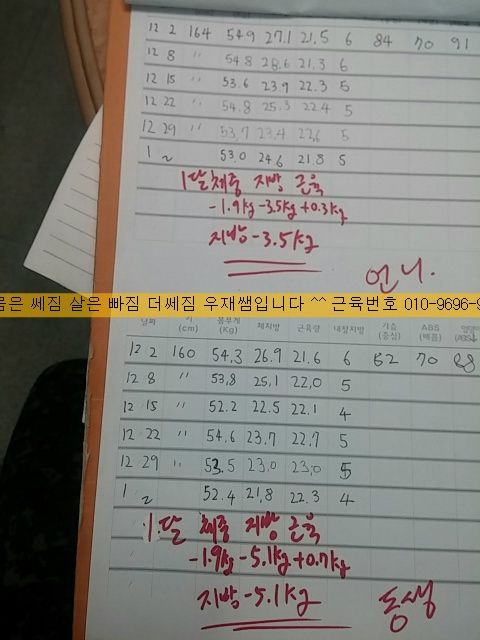 12 2 164 54.9 27.1 21.5 6 84 70 91
12 8 〃 54.8 28.6 21.3 6
12 15 〃 53.6 23.9 22.3 5
12 22 〃 54.8 25.3 22.4 5
12 29 〃 53.7 23.4 22.6 5
1 2 53.0 24.6 21.8 5
1달 체중 지방 근육
-1.9kg -3.5kg +0.3kg
지방 -3.5kg
언니.
몸은 쎄짐 살은 빠짐 더쎄짐 우재쌤입니다 ^^ 근육번호 010-9696-9
날짜 (cm) 몸무게 (Kg) 체지방 근육량 내장지방 가슴 (중심) ABS (배꼽)
12 2 160 54.3 26.9 21.6 6 82 70 88
12 8 〃 53.8 25.1 22.0 5
12 15 〃 52.2 22.5 22.1 4
12 22 〃 54.6 23.7 22.7 5
12 29 〃 53.5 23.0 23.0 5
1 2 52.4 21.8 22.3 4
1달 체중 지방 근육
-1.9kg -5.1kg +0.7kg
지방 -5.1kg
동생